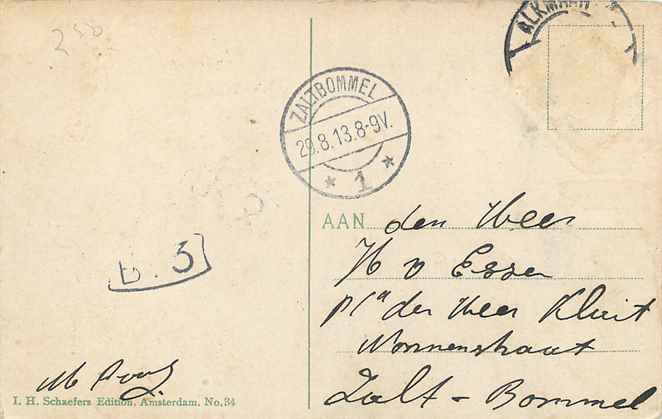 258
ALKMAAR
ZALTBOMMEL
29.8.13.8-9V.
* 1 *
AAN den Heer
H v Essen
p/a der Heer Kluit
Nonnenstraat
Zalt - Bommel
B. 3
I. H. Schaefers Edition. Amsterdam. No. 34